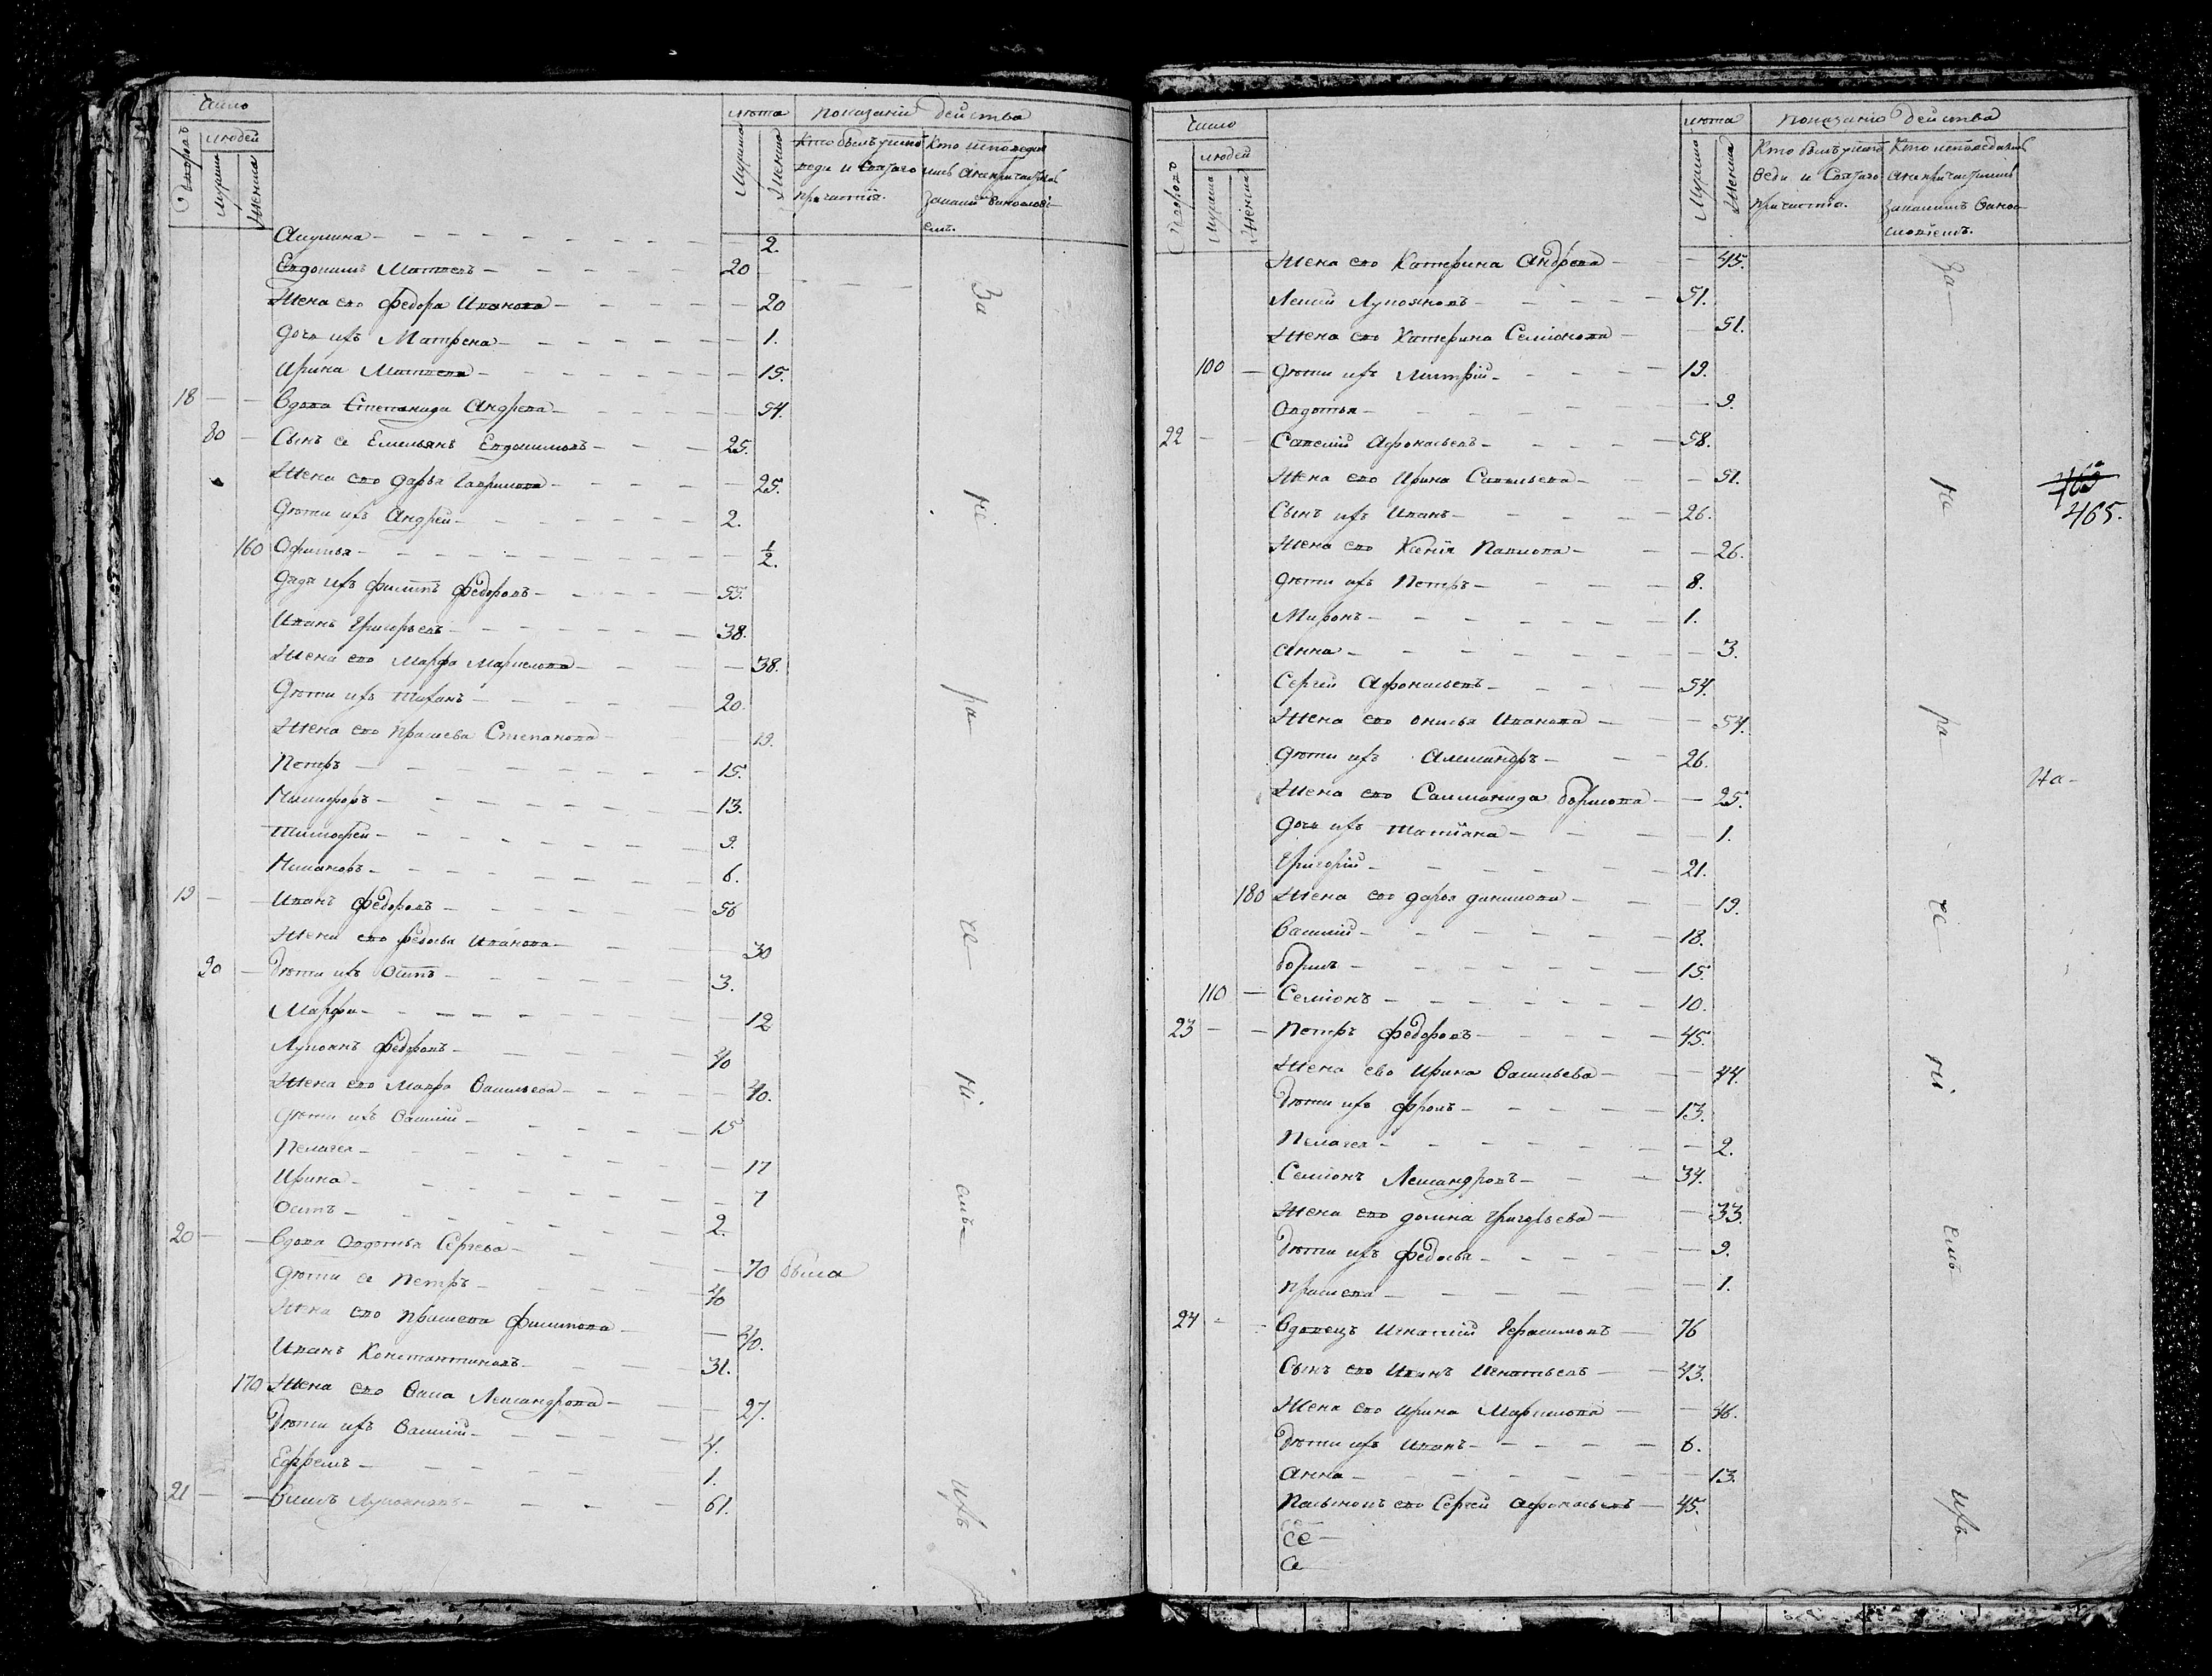 Число
людей
лѣта
Показаніи действа
Дворовъ
Мужеска
Женска
Мужеска
Женска
Кто былъ
веди и Святаго
причастія.
Кто исповеда
лись
Акулина — 2.
Евдокимъ Матвевъ — 20
Жена ево Федора Иванова — 20
Дочь ихъ Матрена — 1.
Ирина Матвева — 15.
18 — Вдова Степанида Андрева — 54.
80 — Сынъ ея Емельянъ Евдокимовъ — 25.
Жена ево Дарья Гаврилова — 25.
Дѣти ихъ Андрей — 2.
160 Офимья — 1/2.
Дядя ихъ Филипъ Федоровъ — 55.
Иванъ Григорьевъ — 38.
Жена ево Марфа Маркелова — 38.
Дѣти ихъ Тиханъ — 20.
Жена ево Прасковья Степанова — 19.
Петръ — 15.
Никифоръ — 13.
Тимофей — 9.
Никаноръ — 6.
19 — Иванъ Федоровъ — 56
Жена ево Федосья Иванова — 30
90 — Дѣти ихъ Осипъ — 3.
Марфа — 12
Лукоянъ Федоровъ — 40
Жена ево Мавра Васильева — 40.
Дѣти ихъ Василій — 15
Пелагея — 17
Ирина — 7
Осипъ — 2.
20 — Вдова Овдотья Сергева — 70 была
Дѣти ея Петръ — 40
Жена ево Праскева Филипова — 40.
Иванъ Константиновъ — 31.
170 Жена ево Васса Лександрова — 27.
Дѣти ихъ Василій — 4.
Ефремъ — 1.
21 — Лукояновъ — 61.
За
не
ра
че
ні
емъ
ихъ
Число
людей
лѣта
Показаніи действа
Дворовъ
Мужеска
Женска
Мужеска
Женска
Кто былъ
веди и Святаго
причастія.
Кто исповедались
Анепричастились
Закакимъ Винос
ловіемъ.
Жена ево Катерина Андрева — 45.
Лукояновъ — 51.
Жена ево Катерина Семіонова — 51.
100 — Дѣти ихъ Митрій — 19.
Овдотья — 9.
22 — Савелій Афонасьевъ — 58.
Жена ево Ирина Савельева — 51.
Сынъ ихъ Иванъ — 26.
Жена ево Ксенія Павлова — 26.
Дѣти ихъ Петръ — 8.
Миронъ — 1.
Анна — 3.
Сергей Афонасьевъ — 54.
Жена ево Онисья Иванова — 54.
Дѣти ихъ Александръ — 26.
Жена ево Саломанида Борисова — 25.
Дочь ихъ Татіана — 1.
Григорій — 21.
180 Жена ево Дарья Данилова — 19.
Василій — 18.
Борисъ — 15.
110 — Семіонъ — 10.
23 — Петръ Федоровъ — 45.
Жена ево Ирина Васильева — 44.
Дѣти ихъ Фролъ — 13.
Пелагея — 2.
Семіонъ Лександровъ — 34.
Жена ево Домна Григорьева — 33.
Дѣти ихъ Федосья — 9.
Праскева — 1.
24 — Вдовецъ Игнатій Герасимовъ — 76
Сынъ ево Иванъ Игнатьевъ — 43.
Жена ево Ирина Маркелова — 46.
Дѣти ихъ Иванъ — 6.
Анна — 13.
ево Сергей Афонасьевъ — 45.
За
не
ра
че
ні
емъ
ихъ
465.
На